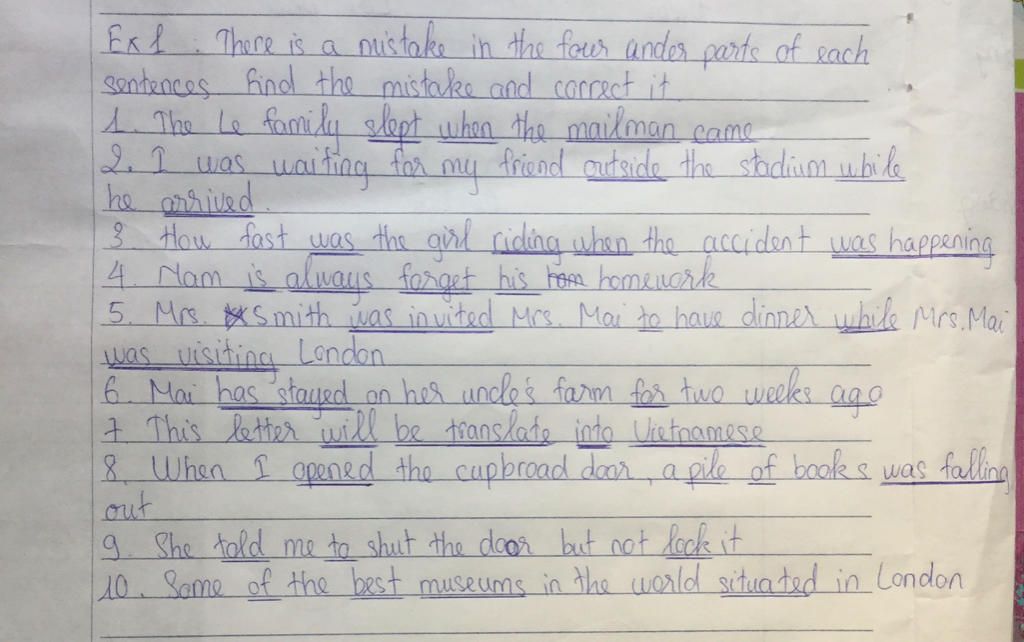 Ex 1 : There is a mistake in the four under parts of each
sentences find the mistake and correct it
1. The Le family slept when the mailman came
2. I was waiting for my friend outside the stadium while
he arrived.
3 How fast was the girl riding when the accident was happening
4. Nam is always forget his homework
5. Mrs. Smith was invited Mrs. Mai to have dinner while Mrs. Mai
was visiting London
6 Mai has stayed on her uncle's farm for two weeks ago
7 This letter will be translate into Vietnamese
8. When I opened the cupbroad door, a pile of books was falling
out
9. She told me to shut the door but not lock it
10. Some of the best museums in the world situated in London